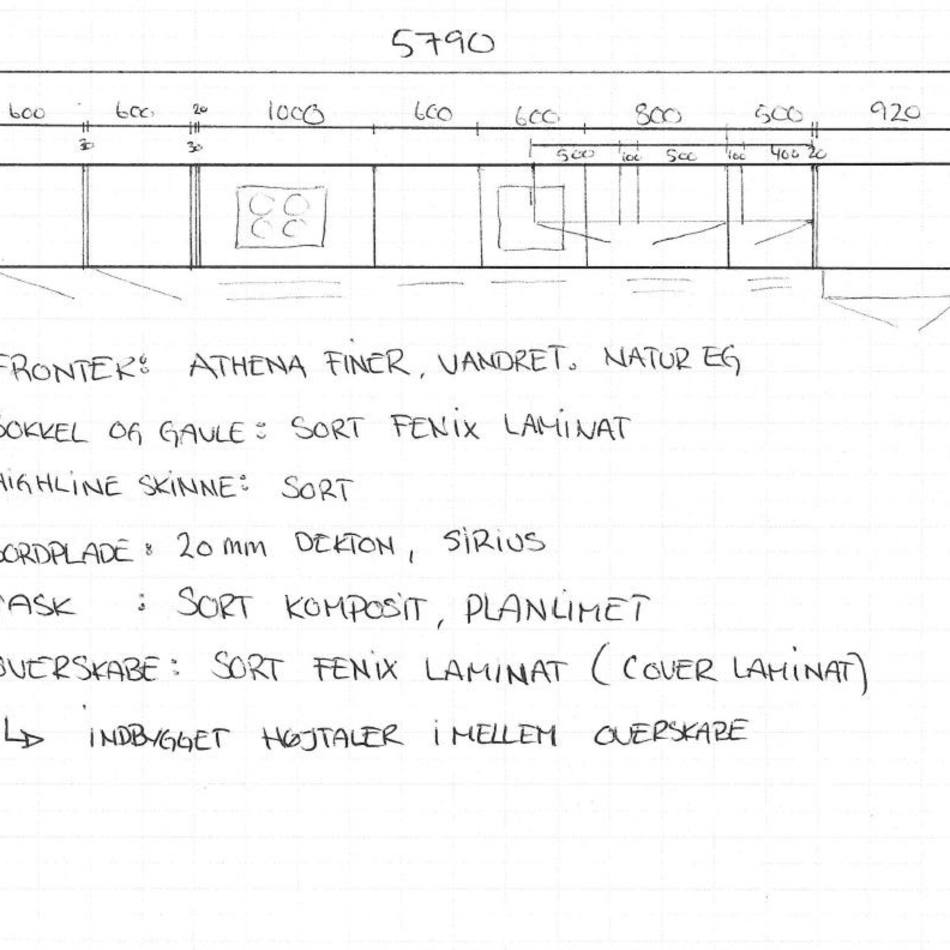 5790
600 600 20 1000 600 600 800 500 920
30 30 500 100 500 100 400 20
FRONTER: ATHENA FINER, VANDRET. NATUR EG
SOKKEL OG GAVLE: SORT FENIX LAMINAT
HIGHLINE SKINNE: SORT
BORDPLADE: 20 mm DEKTON, SIRIUS
VASK : SORT KOMPOSIT, PLANLIMET
OVERSKABE: SORT FENIX LAMINAT (COVER LAMINAT)
↳ INDBYGGET HØJTALER IMELLEM OVERSKABE